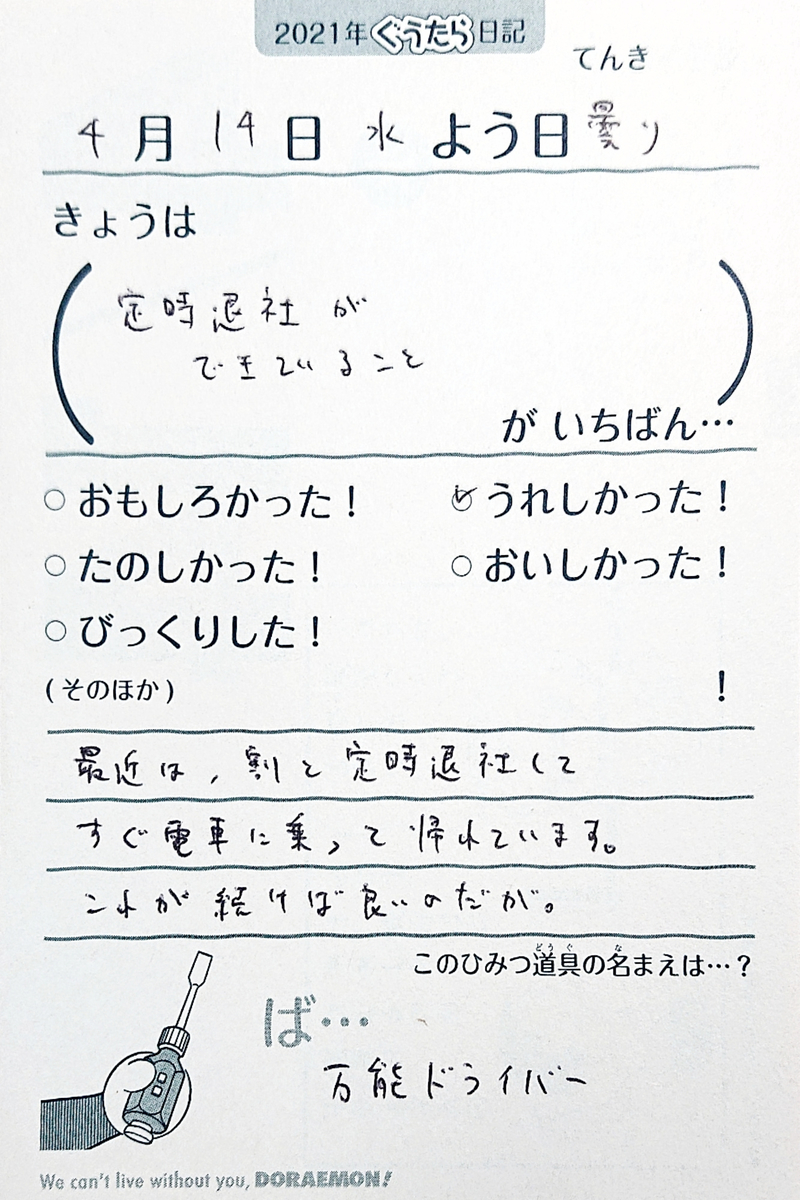 2021年ぐうたら日記
てんき
4月14日 水よう日 曇り
きょうは
定時退社が
できていること
が いちばん…
おもしろかった! うれしかった!
たのしかった! おいしかった!
びっくりした!
(そのほか) !
最近は、割と定時退社して
すぐ電車に乗って帰れています。
これが続けば良いのだが。
このひみつ道具の名まえは…?
どうぐ な
ば…
万能ドライバー
We can't live without you, DORAEMON!